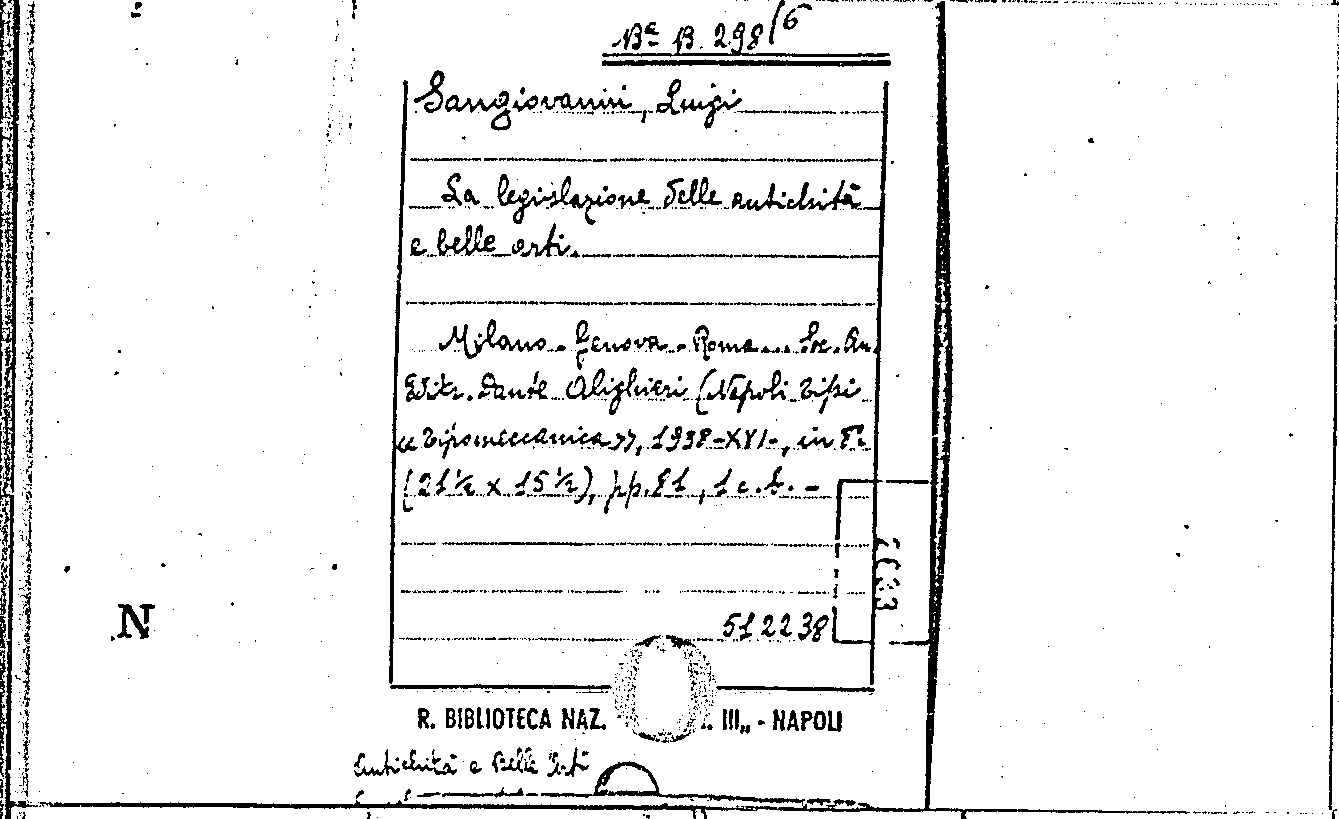 Bª B. 298/6
Sangiovanni, Luigi
La legislazione delle antichità
e belle arti.
Milano - Genova - Roma... Soc. An.
Editr. Dante Alighieri (Napoli Tipi
"Tipomeccanica"), 1938-XVI-, in 8º
(21½ x 15½), pp. 81, 1 c. b. -
2633
512238
N
R. BIBLIOTECA NAZ. III„ - NAPOLI
Antichità e Belle Arti